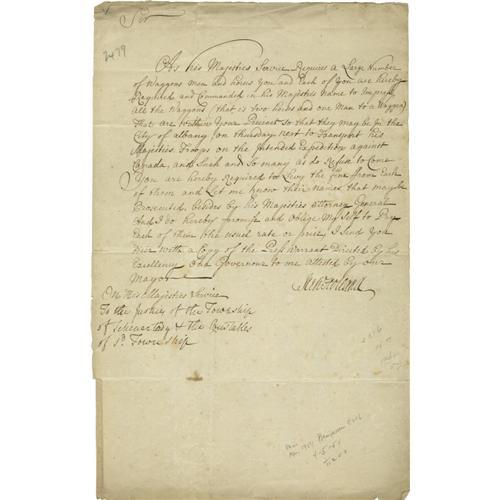 Sir
2479
As his Majesties Service Requires a Large Number
of Waggons men and horses You and Each of You are hereby
Required and Commanded in his Majesties Name to Impress
all the Waggons (that is two horses and one Man to a Waggon)
That are within Your Precinct so that they may be In the
City of albany on thursday next to Transport his
Majesties Troops on the Intended Expedition against
Canada, and Such and So many as do Refuse to Come
You are hereby Required to Levy the fine from Each
of them and Let me know their Names that may be
Prosecuted besides by his Majesties attorney General
And I do hereby promise and oblige My Self to Pay
Each of them the usual rate or price, I Send You
with a Copy of the Press Warrant Directed By his
Excellency the Governour to me Attested by Our
Mayor
On His Majesties Service
To the Justices of the Township
of Schenectady & the Constables
of Sd. Township